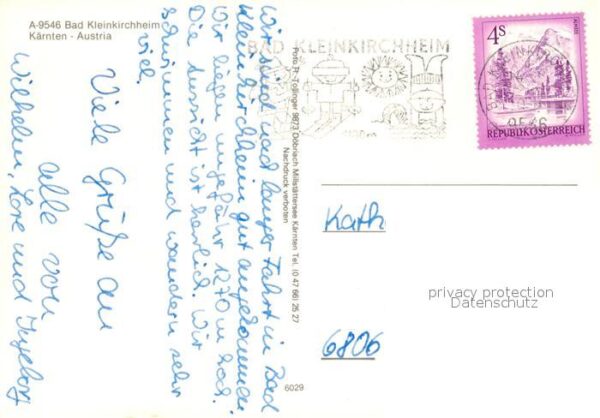 A-9546 Bad Kleinkirchheim
Kärnten - Austria
Wir sind nach langer Fahrt in Bad
Kleinkirchheim gut angekommen
Wir liegen ungefähr 1270 m hoch.
Die Aussicht ist herrlich. Wir
schwimmen und wandern sehr
viel.
Viele Grüße an
alle von
Wilhelm, Lore und Ingeborg
Foto: R. Tollinger 9873 Döbriach Millstättersee Kärnten Tel. (0 47 66) 25 27
Nachdruck verboten
6029
BAD KLEINKIRCHHEIM
4S
REPUBLIK ÖSTERREICH
9546
Kath
6806
privacy protection
Datenschutz